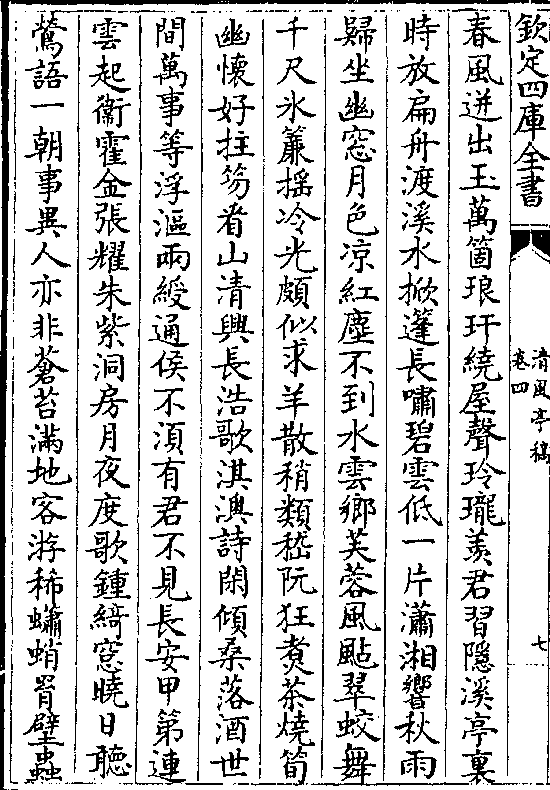 欽定四庫全書
清風亭稿
卷四
七
春風迸出玉萬箇琅玕繞屋聲玲瓏羨君習隱溪亭裏
時放扁舟渡溪水掀篷長嘯碧雲低一片瀟湘響秋雨
歸坐幽窓月色凉紅塵不到水雲鄉芙蓉風颭翠蛟舞
千尺氷簾揺冷光頗似求羊散稍類嵇阮狂煑茶燒筍
幽懷好拄笏看山清興長浩歌淇澳詩閑傾桑落酒世
間萬事等浮漚兩綬通侯不湏有君不見長安甲第連
雲起衛霍金張耀朱紫洞房月夜度歌鍾綺窓曉日聽
鶯語一朝事異人亦非蒼苔滿地客游稀蠨蛸罥壁蟲